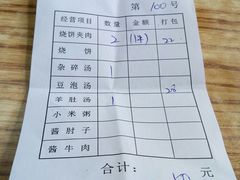 第 100 号
经营项目 数量 金额 打包
烧饼夹肉 2 (1#) 22
烧饼
杂碎汤 1
豆泡汤 28
羊肚汤 1
小米粥
酱肘子
酱牛肉
合计： 元